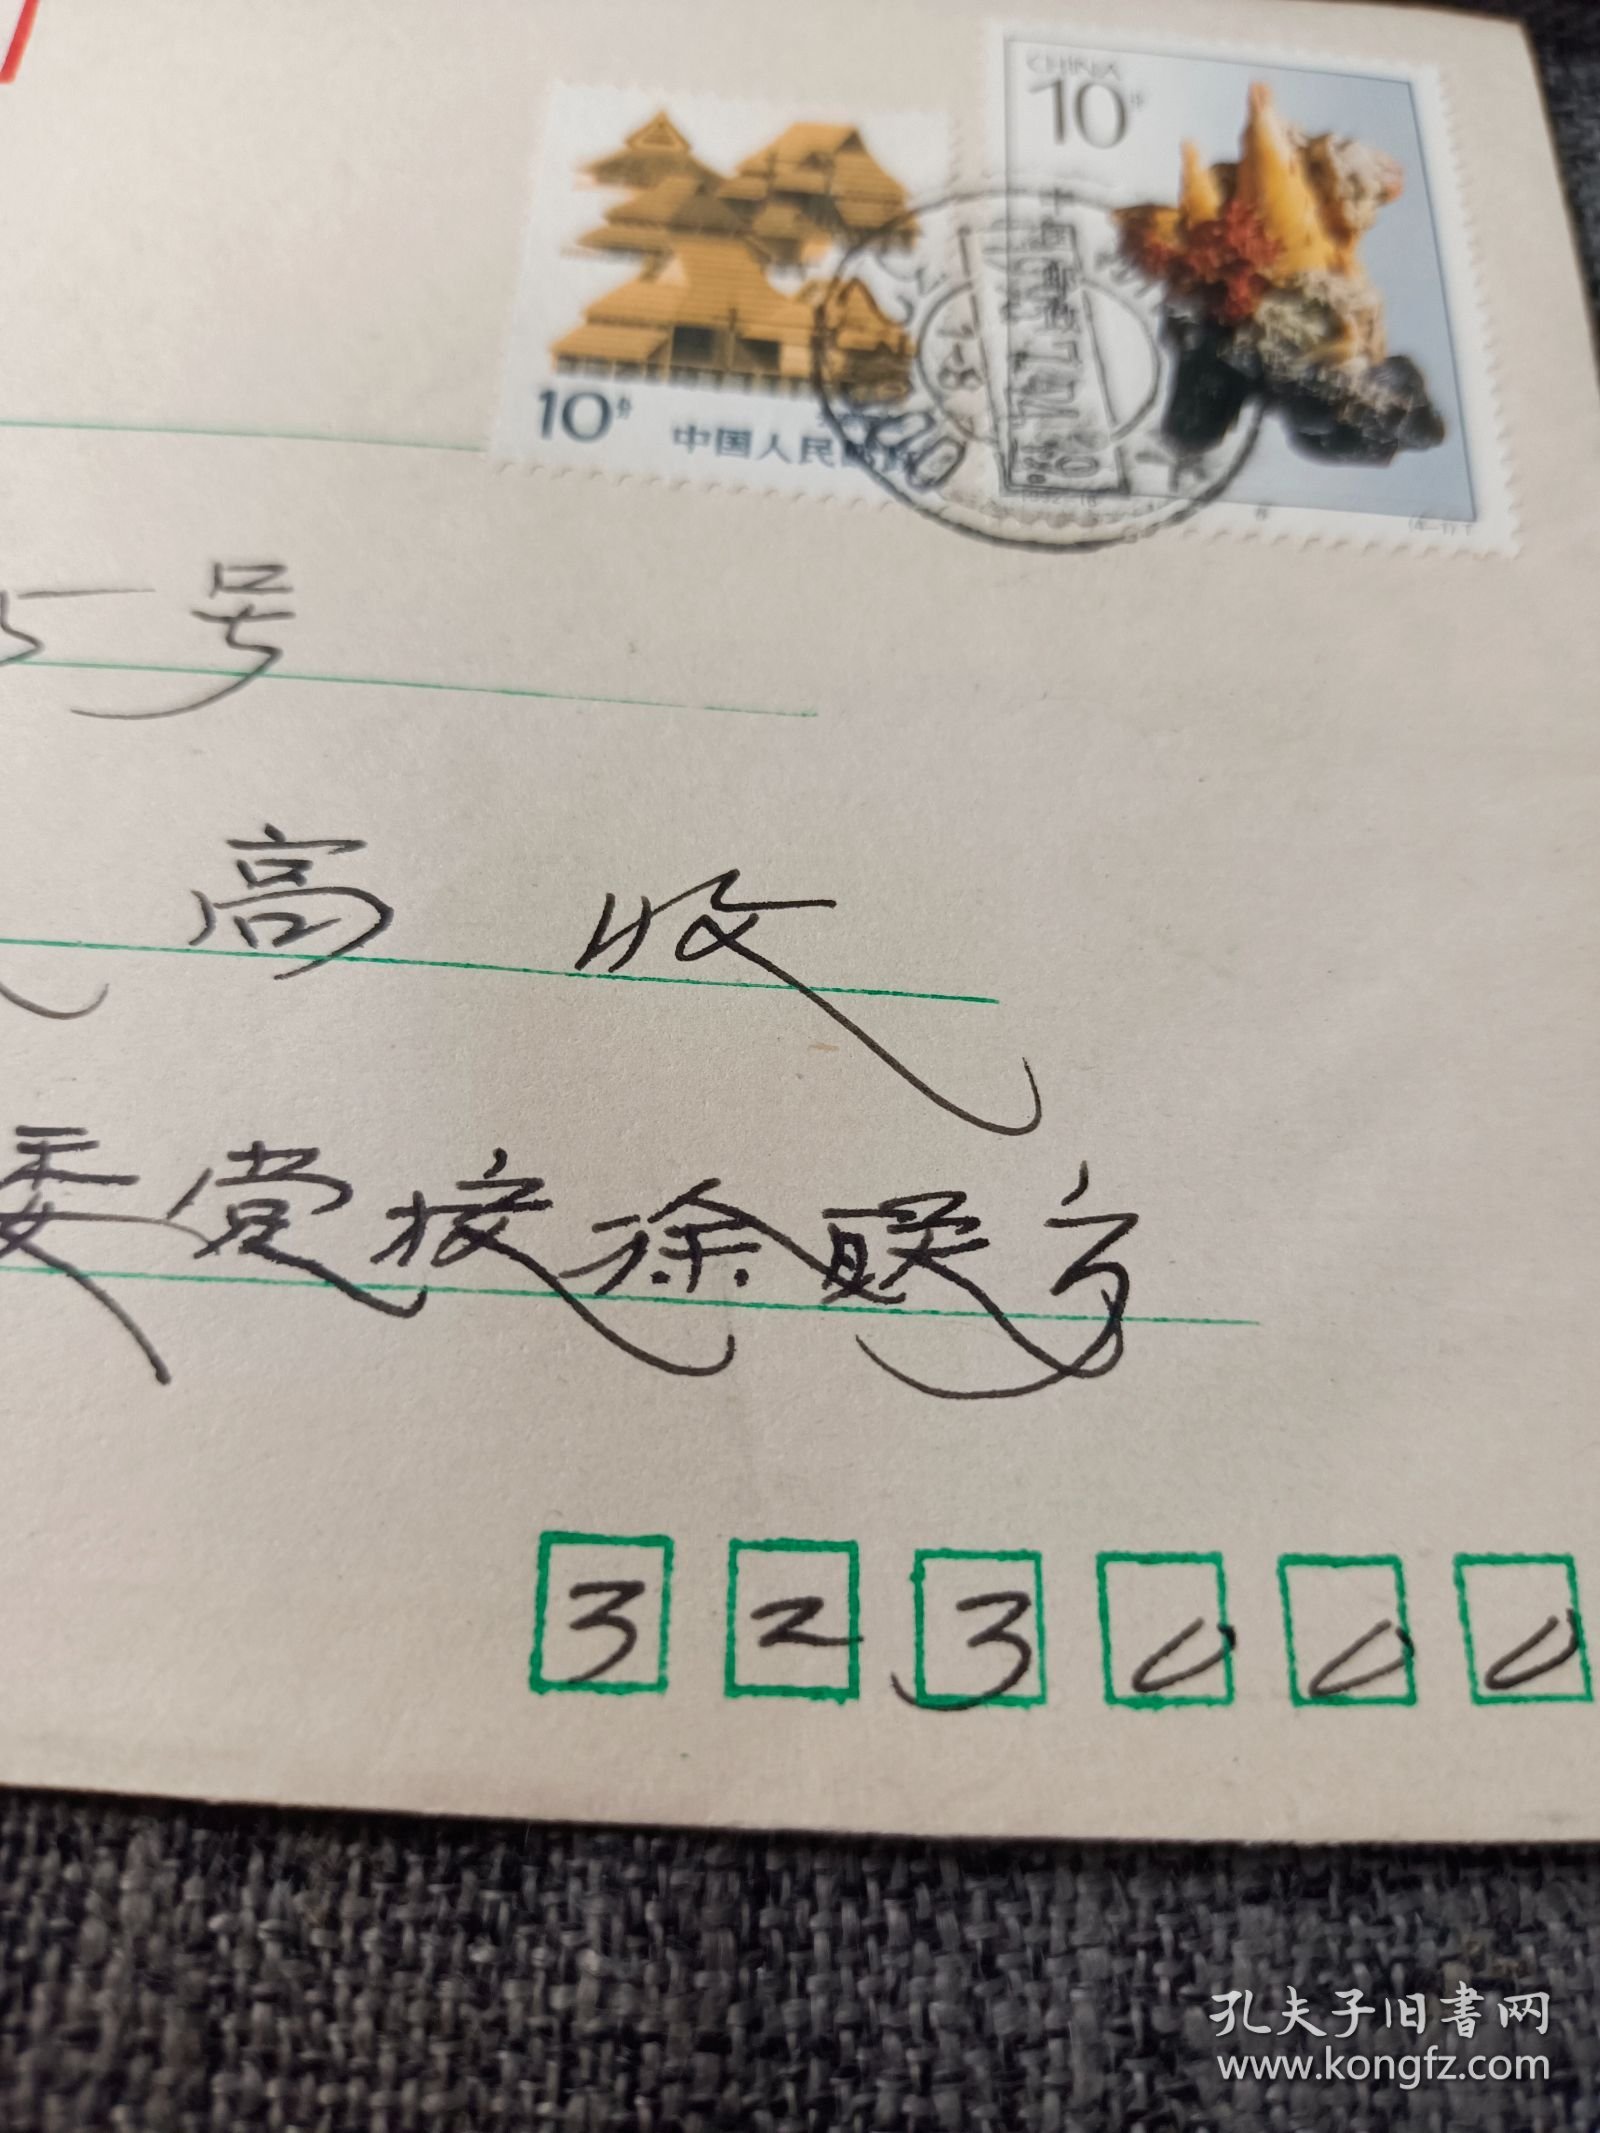 CHINA
10分
10分
中国人民邮政
5号
高 收
委党校徐联方
3 2 3 0 0 0
孔夫子旧書网
www.kongfz.com